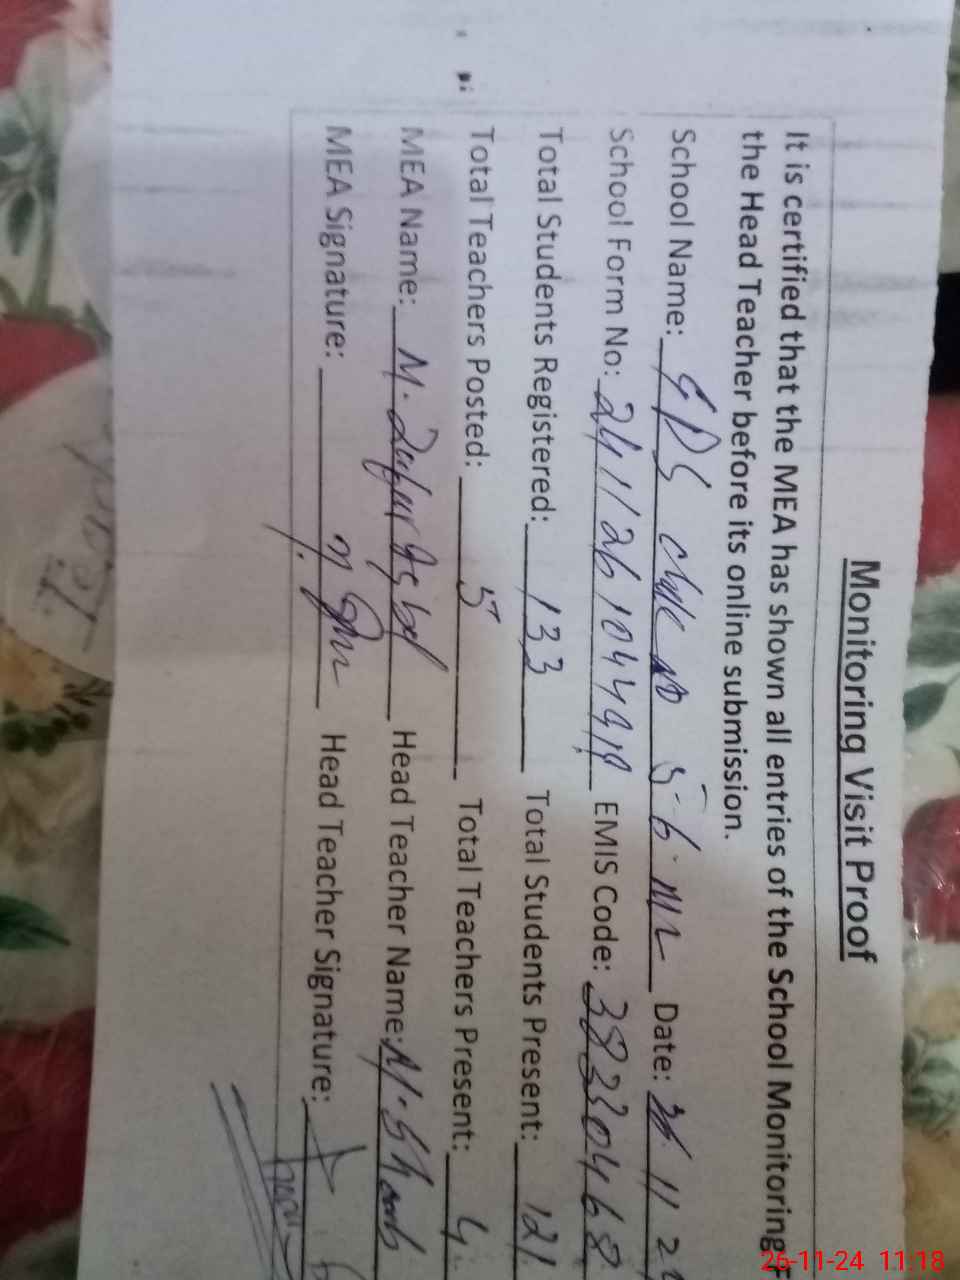 Monitoring Visit Proof
It is certified that the MEA has shown all entries of the School Monitoring F
the Head Teacher before its online submission.
School Name: GPS chk no 5-6. M/L Date: 26 11 2
School Form No: EMIS Code: 38330468
Total Students Registered: 133 Total Students Present: 121
Total Teachers Posted: 5 Total Teachers Present: 4
MEA Name: M. Zafar Iqbal Head Teacher Name: M. Shoaib
MEA Signature: Head Teacher Signature:
26-11-24 11:18